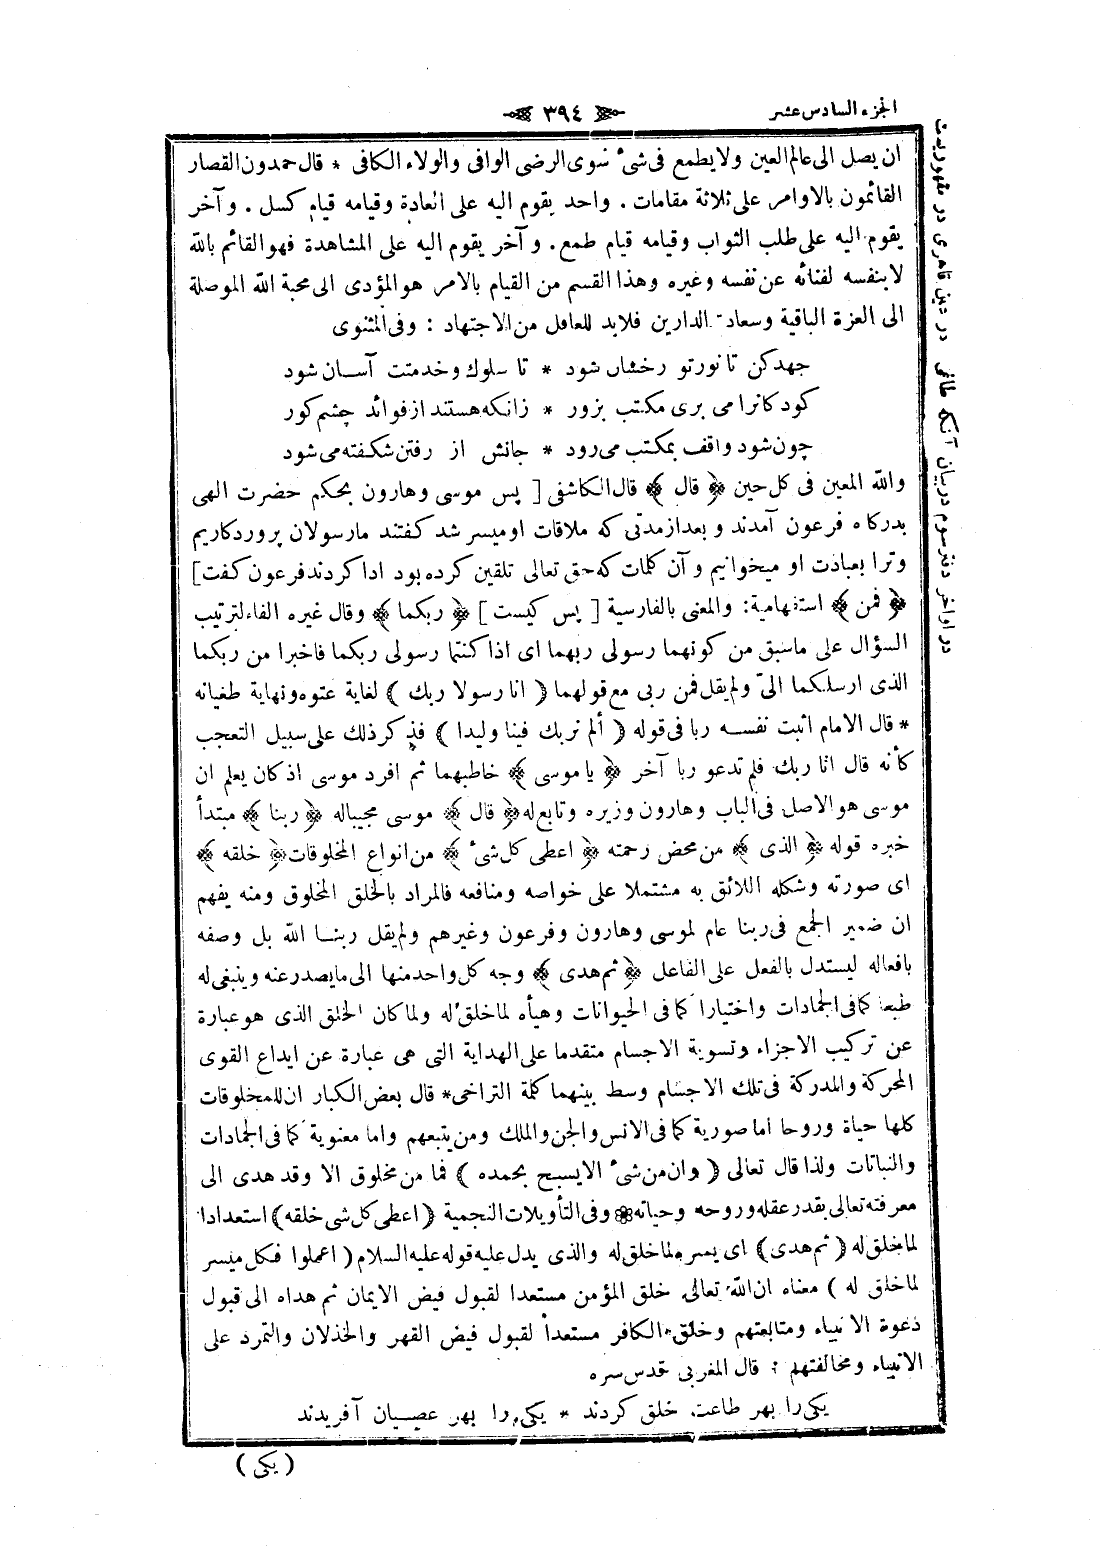 الجزء السادس عشر
٣٩٤
ان يصل الى عالم العين ولا يطمع فى شئ سوى الرضى الوافى والولاء الكافى * قال حمدون القصار
القائمون بالاوامر على ثلاثة مقامات . واحد يقوم اليه على العادة وقيامه قيام كسل . وآخر
يقوم اليه على طلب الثواب وقيامه قيام طمع . وآخر يقوم اليه على المشاهدة فهو القائم بالله
لا بنفسه لفنائه عن نفسه وغيره وهذا القسم من القيام بالامر هو المؤدى الى محبة الله الموصلة
الى العزة الباقية وسعادة الدارين فلابد للعاقل من الاجتهاد : وفى المثنوى
جهد كن تا نور تو رخشان شود * تا سلوك و خدمتت آسان شود
كودكانرا مى برى مكتب بزور * زانكه هستند از فوائد چشم كور
چون شود واقف بمكتب مى رود * جانش از رفتن شكفته مى شود
والله المعين فى كل حين ﴿ قال ﴾ قال الكاشفى [ پس موسى وهارون بحكم حضرت الهى
بدركاه فرعون آمدند و بعد از مدتى كه ملاقات او ميسر شد كفتند ما رسولان پروردكاريم
وترا بعبادت او ميخوانيم و آن كلمات كه حق تعالى تلقين كرده بود ادا كردند فرعون كفت ]
﴿ فمن ﴾ استفهامية : والمعنى بالفارسية [ پس كيست ] ﴿ ربكما ﴾ وقال غيره الفاء لترتيب
السؤال على ماسبق من كونهما رسولى ربهما اى اذا كنتما رسولى ربكما فاخبرا من ربكما
الذى ارسلكما الىّ ولم يقل فمن ربى مع قولهما ( انا رسولا ربك ) لغاية عتوه ونهاية طغيانه
* قال الامام اثبت نفسه ربا فى قوله ( ألم نربك فينا وليدا ) فذكر ذلك على سبيل التعجب
كأنه قال انا ربك فلم تدعو ربا آخر ﴿ يا موسى ﴾ خاطبهما ثم افرد موسى اذ كان يعلم ان
موسى هو الاصل فى الباب وهارون وزيره وتابع له ﴿ قال ﴾ موسى مجيبا له ﴿ ربنا ﴾ مبتدأ
خبره قوله ﴿ الذى ﴾ من محض رحمته ﴿ اعطى كل شئ ﴾ من انواع المخلوقات ﴿ خلقه ﴾
اى صورته وشكله اللائق به مشتملا على خواصه ومنافعه فالمراد بالخلق المخلوق ومنه يفهم
ان ضمير الجمع فى ربنا عام لموسى وهارون وفرعون وغيرهم ولم يقل ربنا الله بل وصفه
بافعاله ليستدل بالفعل على الفاعل ﴿ ثم هدى ﴾ وجه كل واحد منها الى ما يصدر عنه وينبغى له
طبعا كما فى الجمادات واختيارا كما فى الحيوانات وهيأه لما خلق له ولما كان الخلق الذى هو عبارة
عن تركيب الاجزاء وتسوية الاجسام متقدما على الهداية التى هى عبارة عن ايداع القوى
المحركة والمدركة فى تلك الاجسام وسط بينهما كلمة التراخى * قال بعض الكبار ان للمخلوقات
كلها حياة وروحا اما صورية كما فى الانس والجن والملك ومن يتبعهم واما معنوية كما فى الجمادات
والنباتات ولذا قال تعالى ( وان من شئ الا يسبح بحمده ) فما من مخلوق الا وقد هدى الى
معرفته تعالى بقدر عقله وروحه وحياته وفى التأويلات النجمية ( اعطى كل شئ خلقه ) استعدادا
لما خلق له ( ثم هدى ) اى يسره لما خلق له والذى يدل عليه قوله عليه السلام ( اعملوا فكل ميسر
لما خلق له ) معناه ان الله تعالى خلق المؤمن مستعدا لقبول فيض الايمان ثم هداه الى قبول
دعوة الانبياء ومتابعتهم وخلق الكافر مستعدا لقبول فيض القهر والخذلان والتمرد على
الانبياء ومخالفتهم : قال المغربى قدس سره
يكى را بهر طاعت خلق كردند * يكى را بهر عصيان آفريدند
( يكى )
در اواخر دفتر سوم در بيان آنكه طاغى در عين قاهرى در مقهوريست